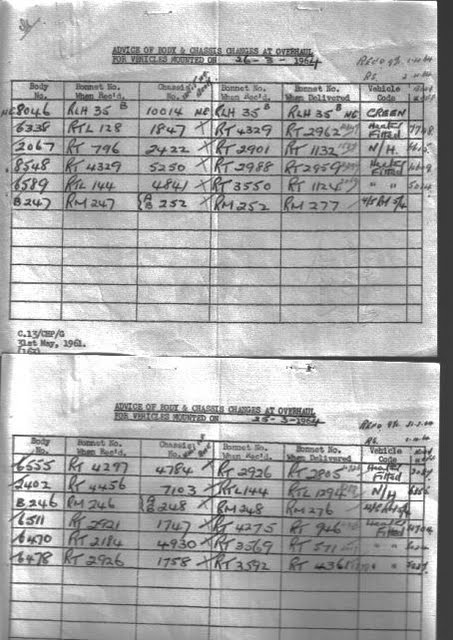 ADVICE OF BODY & CHASSIS CHANGES AT OVERHAUL
FOR VEHICLES MOUNTED ON 26-3-1964
Body No. Bonnet No. When Rec'd. Chassis No. Bonnet No. When Rec'd. Bonnet No. When Delivered Vehicle Code
8046 RLH 35 B 10014 NC RLH 35 B RLH 35 B NC GREEN
6338 RTL 128 1847 X RT 4329 RT 2962 Heater Fitted
2067 RT 796 2422 X RT 2901 RT 1132 N/H.
8548 RT 4329 5250 X RT 2988 RT 2959 Heater Fitted
6589 RTL 144 4841 X RT 3550 RT 1124 " "
B247 RM 247 A B 252 X RM 252 RM 277
C.13/CHP/G
31st May, 1961.
ADVICE OF BODY & CHASSIS CHANGES AT OVERHAUL
FOR VEHICLES MOUNTED ON 25-3-1964
Body No. Bonnet No. When Rec'd. Chassis No. Bonnet No. When Rec'd. Bonnet No. When Delivered Vehicle Code
6555 RT 4297 4784 X RT 2926 RT 2805 Heater Fitted
2402 RT 4456 7103 X RTL 144 RTL 1294 N/H
B246 RM 246 A B 248 X RM 248 RM 276
6511 RT 2921 1747 X RT 4275 RT 946 Heater Fitted
6470 RT 2184 4930 X RT 3569 RT 571 " "
6478 RT 2926 1758 X RT 3592 RT 436 " "